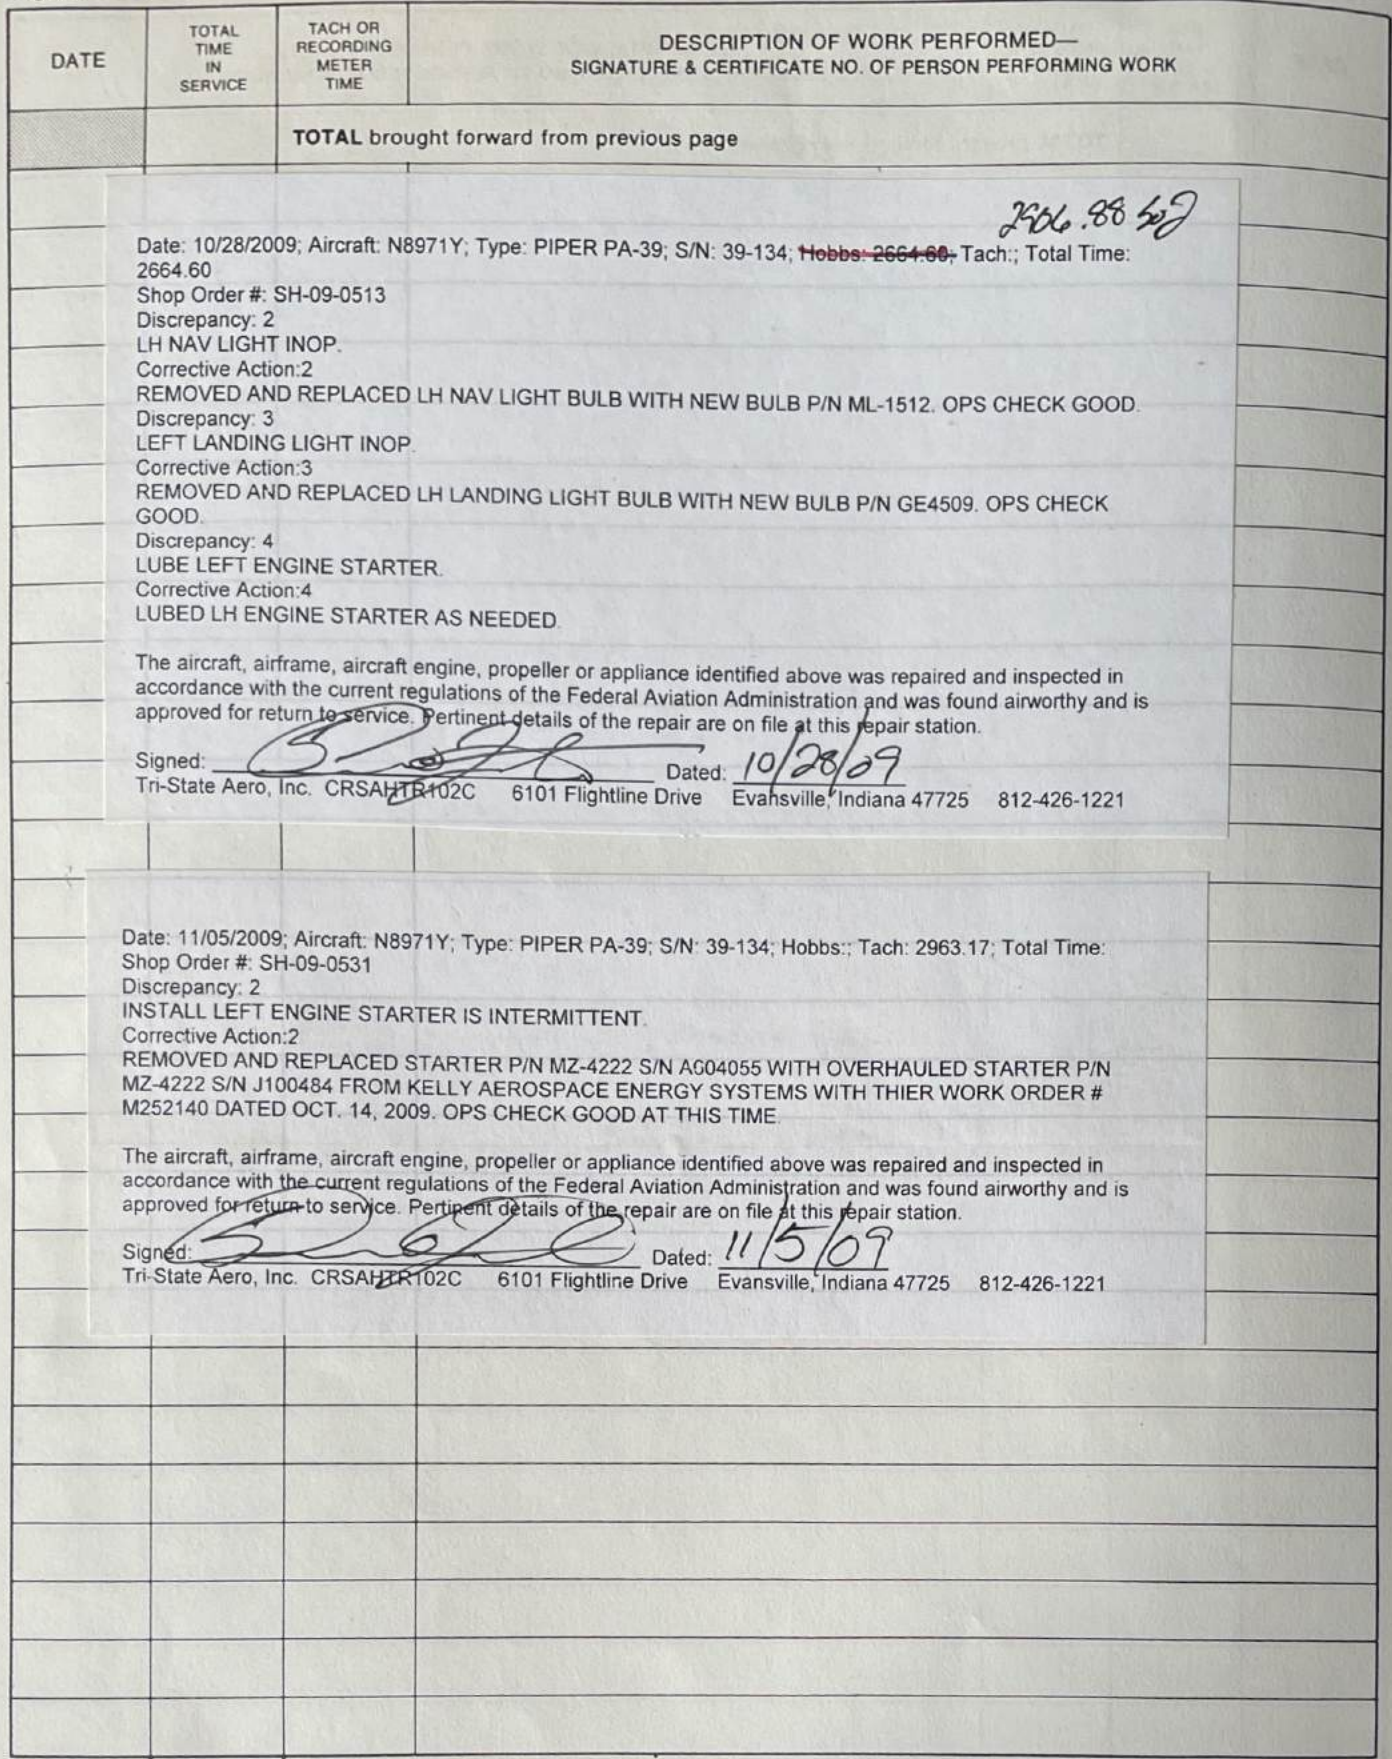 DATE
TOTAL
TIME
IN
SERVICE
TACH OR
RECORDING
METER
TIME
DESCRIPTION OF WORK PERFORMED—
SIGNATURE & CERTIFICATE NO. OF PERSON PERFORMING WORK
TOTAL brought forward from previous page
2906.88
Date: 10/28/2009; Aircraft: N8971Y; Type: PIPER PA-39; S/N: 39-134; Hobbs: 2664.60; Tach:; Total Time:
2664.60
Shop Order #: SH-09-0513
Discrepancy: 2
LH NAV LIGHT INOP.
Corrective Action:2
REMOVED AND REPLACED LH NAV LIGHT BULB WITH NEW BULB P/N ML-1512. OPS CHECK GOOD.
Discrepancy: 3
LEFT LANDING LIGHT INOP.
Corrective Action:3
REMOVED AND REPLACED LH LANDING LIGHT BULB WITH NEW BULB P/N GE4509. OPS CHECK
GOOD.
Discrepancy: 4
LUBE LEFT ENGINE STARTER.
Corrective Action:4
LUBED LH ENGINE STARTER AS NEEDED.
The aircraft, airframe, aircraft engine, propeller or appliance identified above was repaired and inspected in
accordance with the current regulations of the Federal Aviation Administration and was found airworthy and is
approved for return to service. Pertinent details of the repair are on file at this repair station.
Signed: Dated: 10/28/09
Tri-State Aero, Inc. CRSAHTR102C 6101 Flightline Drive Evansville, Indiana 47725 812-426-1221
Date: 11/05/2009; Aircraft: N8971Y; Type: PIPER PA-39; S/N: 39-134; Hobbs:; Tach: 2963.17; Total Time:
Shop Order #: SH-09-0531
Discrepancy: 2
INSTALL LEFT ENGINE STARTER IS INTERMITTENT.
Corrective Action:2
REMOVED AND REPLACED STARTER P/N MZ-4222 S/N AG04055 WITH OVERHAULED STARTER P/N
MZ-4222 S/N J100484 FROM KELLY AEROSPACE ENERGY SYSTEMS WITH THIER WORK ORDER #
M252140 DATED OCT. 14, 2009. OPS CHECK GOOD AT THIS TIME.
The aircraft, airframe, aircraft engine, propeller or appliance identified above was repaired and inspected in
accordance with the current regulations of the Federal Aviation Administration and was found airworthy and is
approved for return to service. Pertinent details of the repair are on file at this repair station.
Signed: Dated: 11/5/09
Tri-State Aero, Inc. CRSAHTR102C 6101 Flightline Drive Evansville, Indiana 47725 812-426-1221